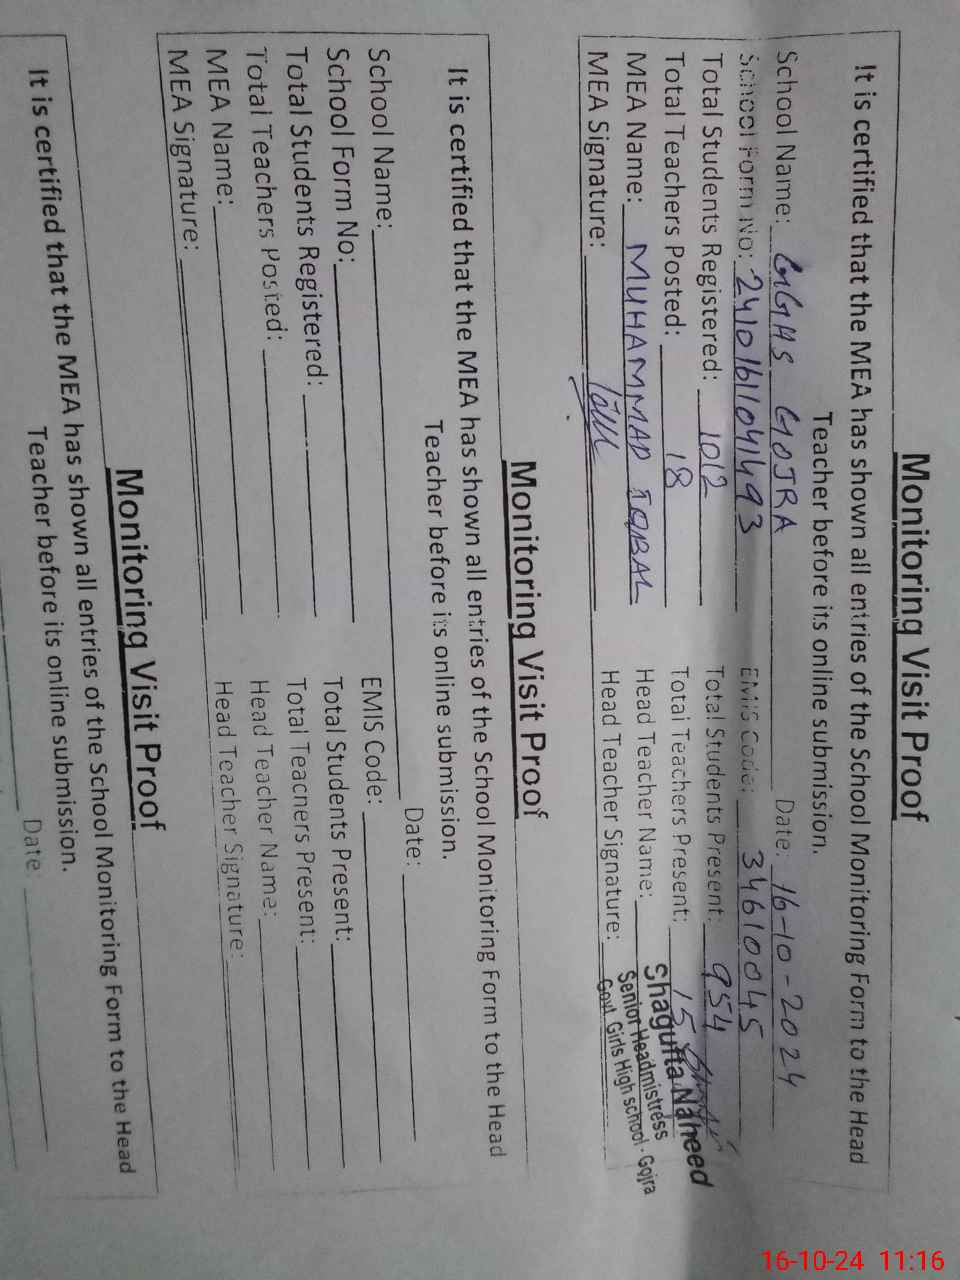 Monitoring Visit Proof
It is certified that the MEA has shown all entries of the School Monitoring Form to the Head
Teacher before its online submission.
School Name: GGHS GOJRA Date: 16-10-2024
School Form No: 2410161041493 EMIS Code: 34610045
Total Students Registered: 1012 Total Students Present: 954
Total Teachers Posted: 18 Total Teachers Present: 15
MEA Name: MUHAMMAD IQBAL Head Teacher Name:
MEA Signature: Head Teacher Signature:
Shagufta Naheed
Senior Headmistress
Govt. Girls High school Gojra
Monitoring Visit Proof
It is certified that the MEA has shown all entries of the School Monitoring Form to the Head
Teacher before its online submission.
School Name: Date:
School Form No: EMIS Code:
Total Students Registered: Total Students Present:
Total Teachers Posted: Total Teachers Present:
MEA Name: Head Teacher Name:
MEA Signature: Head Teacher Signature:
Monitoring Visit Proof
It is certified that the MEA has shown all entries of the School Monitoring Form to the Head
Teacher before its online submission.
Date:
16-10-24 11:16